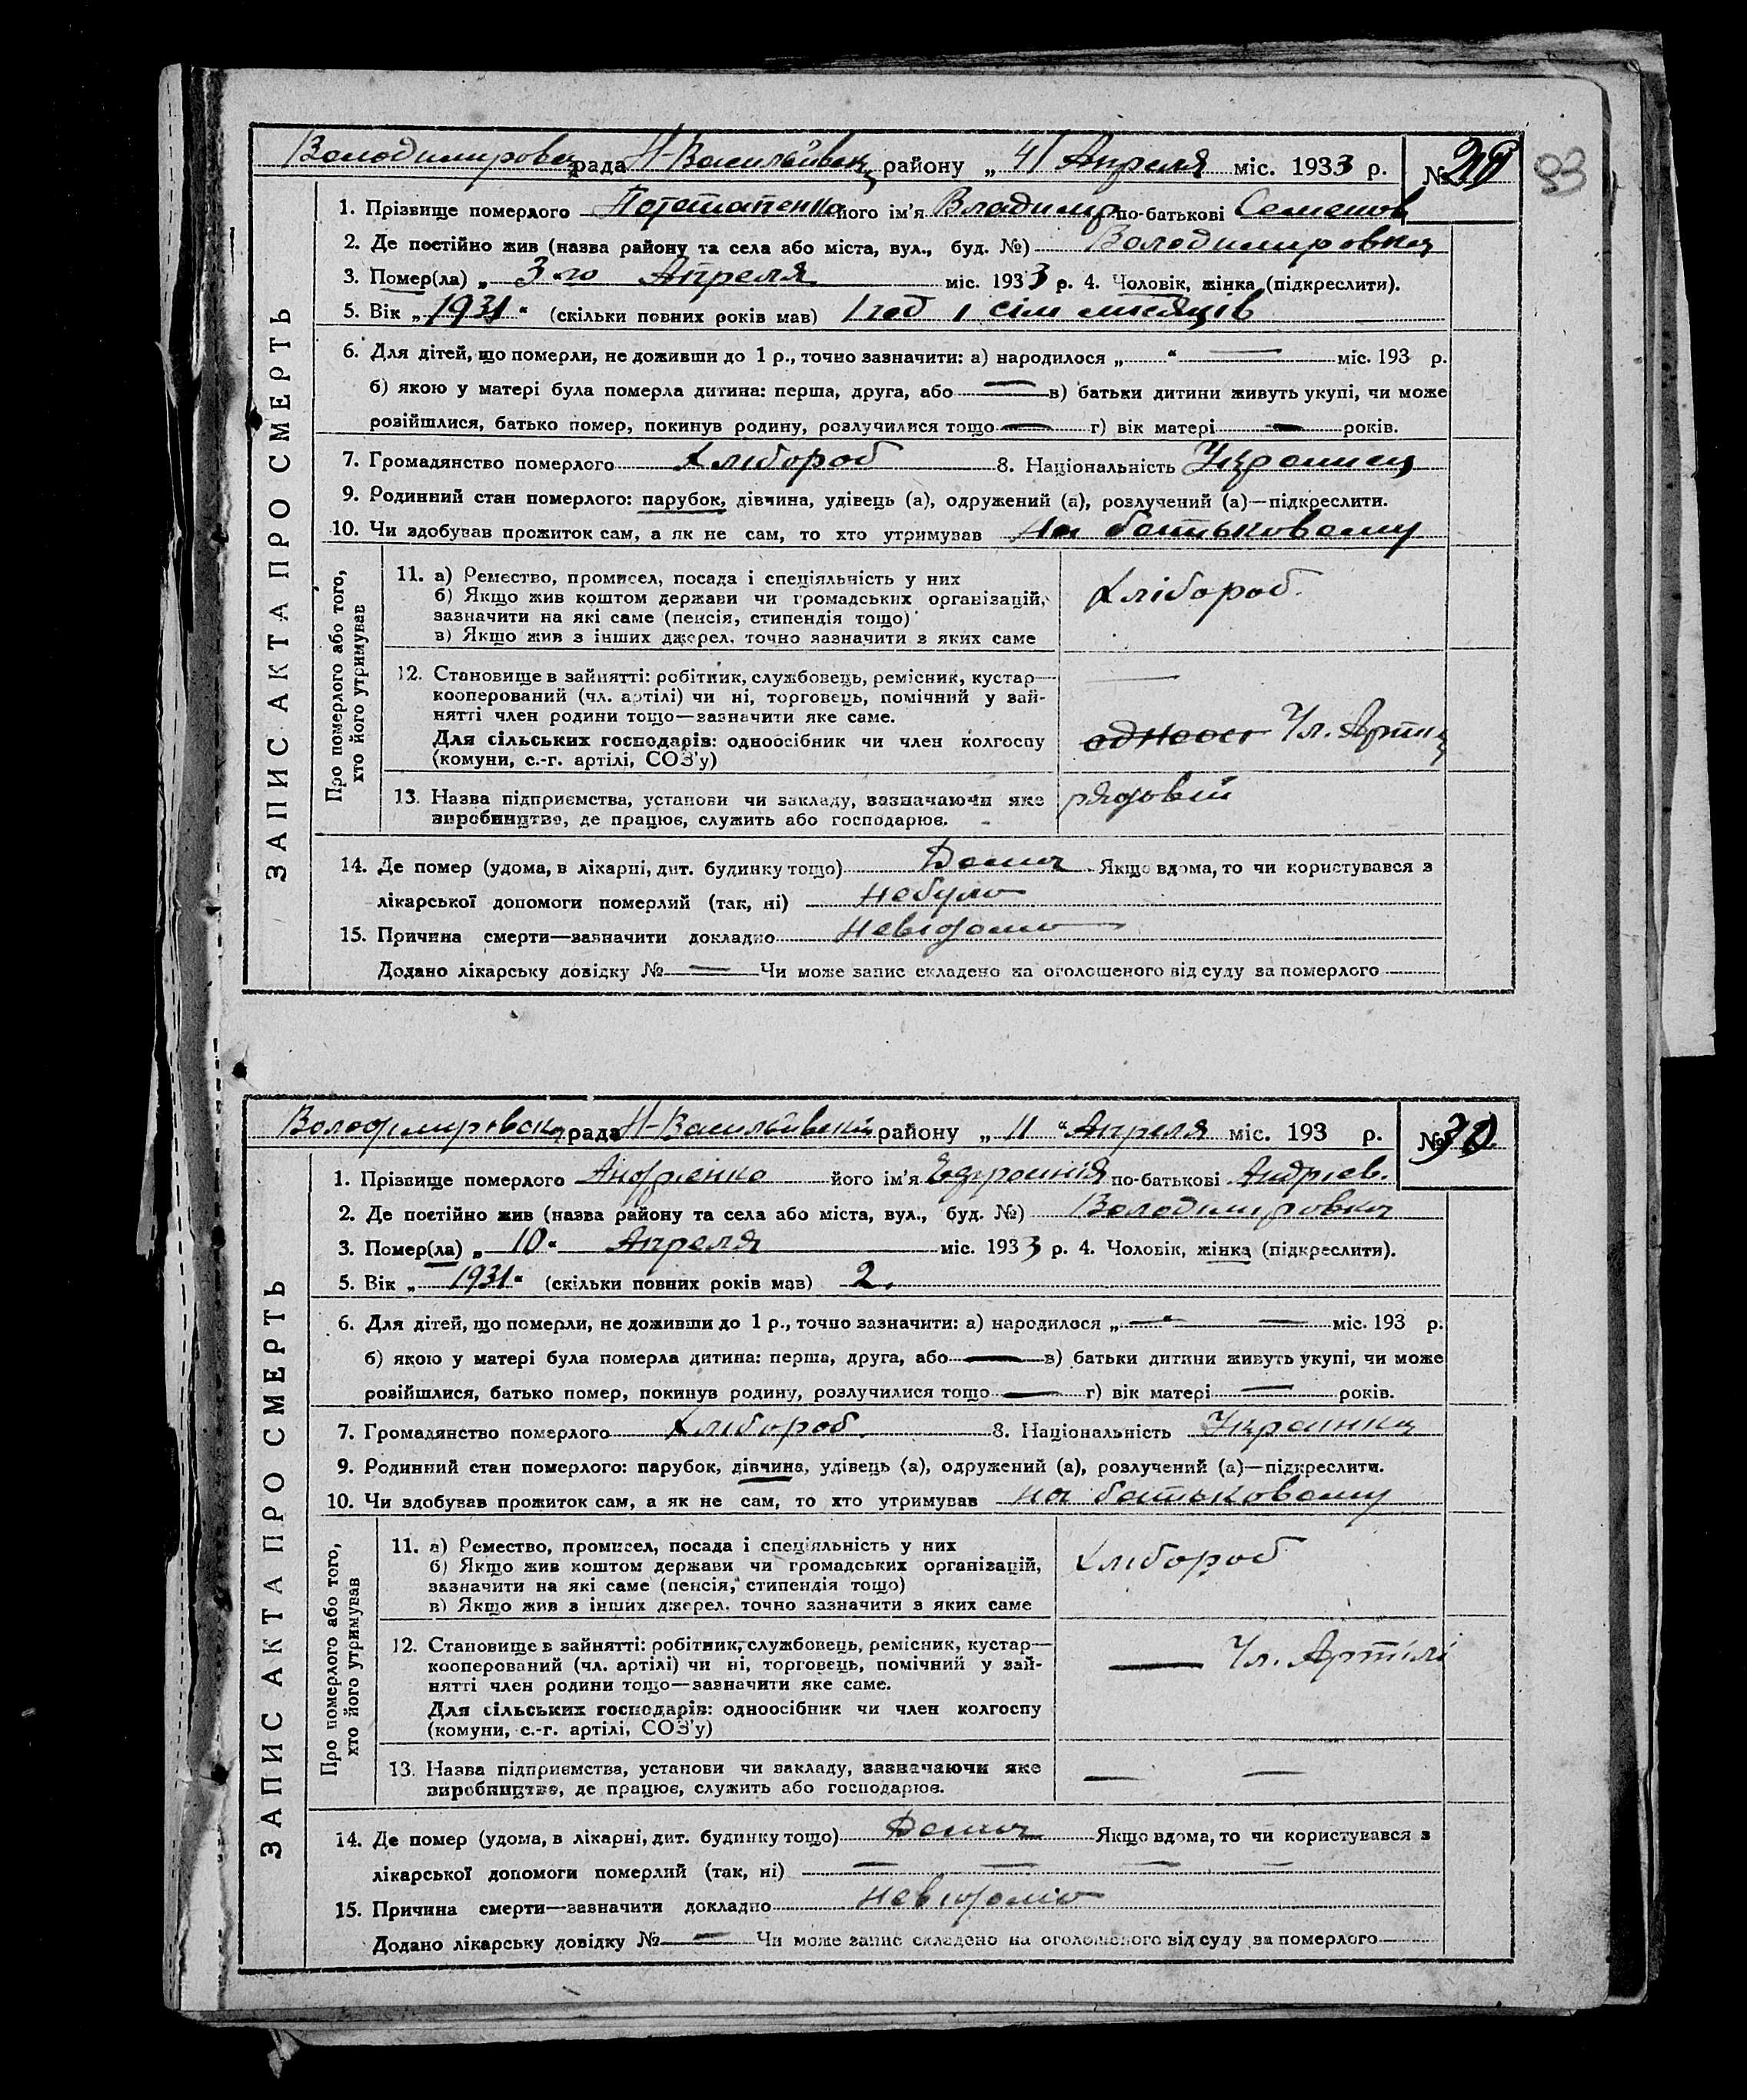 Володимировск рада Н-Васильївск району „ 4 Апреля міс. 1933 р. № 29
93
1. Прізвище померлого Потапенко його ім'я Владимир по-батькові Семенов
2. Де постійно жив (назва району та села або міста, вул., буд. №) Володимировка
3. Помер(ла) „ 3-го Апреля міс. 1933 р. 4. Чоловік, жінка (підкреслити).
5. Вік „ 1931 “ (скільки повних років мав) 1 год і сім місяців
6. Для дітей, що померли, не доживши до 1 р., точно зазначити: а) народилося „ “ — міс. 193 р.
б) якою у матері була померла дитина: перша, друга, або — в) батьки дитини живуть укупі, чи може
розійшлися, батько помер, покинув родину, розлучилися тощо — г) вік матері — років.
7. Громадянство померлого Хлібороб 8. Національність Украинец
9. Родинний стан померлого: парубок, дівчина, удівець (а), одружений (а), розлучений (а)—підкреслити.
10. Чи здобував прожиток сам, а як не сам, то хто утримував на батьковому
ЗАПИС АКТА ПРО СМЕРТЬ
Про померлого або того,
хто його утримував
11. а) Ремество, промисел, посада і спеціяльність у них
б) Якщо жив коштом держави чи громадських організацій,
зазначити на які саме (пенсія, стипендія тощо)
в) Якщо жив з інших джерел, точно зазначити з яких саме
Хлібороб.
12. Становище в зайнятті: робітник, службовець, ремісник, кустар—
кооперований (чл. артілі) чи ні, торговець, помічний у зай-
нятті член родини тощо—зазначити яке саме.
Для сільських господарів: одноосібник чи член колгоспу
(комуни, с.-г. артілі, СОЗ'у)
— одноос Чл. Артіл
13. Назва підприємства, установи чи закладу, зазначаючи яке
виробництво, де працює, служить або господарює.
рядовій
14. Де помер (удома, в лікарні, дит. будинку тощо) Дома Якщо вдома, то чи користувався з
лікарської допомоги померлий (так, ні) небуло
15. Причина смерти—зазначити докладно невідомо
Додано лікарську довідку № — Чи може запис складено на оголошеного від суду за померлого
Володимировск рада Н-Васильївск району „ 11 “ Апреля міс. 193 р. № 30
1. Прізвище померлого Андрієнко його ім'я по-батькові Андрієв.
2. Де постійно жив (назва району та села або міста, вул., буд. №) Володимировка
3. Помер(ла) „ 10 “ Апреля міс. 1933 р. 4. Чоловік, жінка (підкреслити).
5. Вік „ 1931 “ (скільки повних років мав) 2.
6. Для дітей, що померли, не доживши до 1 р., точно зазначити: а) народилося „ — “ — міс. 193 р.
б) якою у матері була померла дитина: перша, друга, або — в) батьки дитини живуть укупі, чи може
розійшлися, батько помер, покинув родину, розлучилися тощо — г) вік матері — років.
7. Громадянство померлого Хлібороб. 8. Національність Украинка
9. Родинний стан померлого: парубок, дівчина, удівець (а), одружений (а), розлучений (а)—підкреслити.
10. Чи здобував прожиток сам, а як не сам, то хто утримував на батьковому
ЗАПИС АКТА ПРО СМЕРТЬ
Про померлого або того,
хто його утримував
11. а) Ремество, промисел, посада і спеціяльність у них
б) Якщо жив коштом держави чи громадських організацій,
зазначити на які саме (пенсія, стипендія тощо)
в) Якщо жив з інших джерел, точно зазначити з яких саме
Хлібороб
12. Становище в зайнятті: робітник, службовець, ремісник, кустар—
кооперований (чл. артілі) чи ні, торговець, помічний у зай-
нятті член родини тощо—зазначити яке саме.
Для сільських господарів: одноосібник чи член колгоспу
(комуни, с.-г. артілі, СОЗ'у)
— Чл. Артілі
13. Назва підприємства, установи чи закладу, зазначаючи яке
виробництво, де працює, служить або господарює.
— —
14. Де помер (удома, в лікарні, дит. будинку тощо) Дома Якщо вдома, то чи користувався з
лікарської допомоги померлий (так, ні) — — — —
15. Причина смерти—зазначити докладно невідомо
Додано лікарську довідку № — Чи може запис складено на оголошеного від суду за померлого